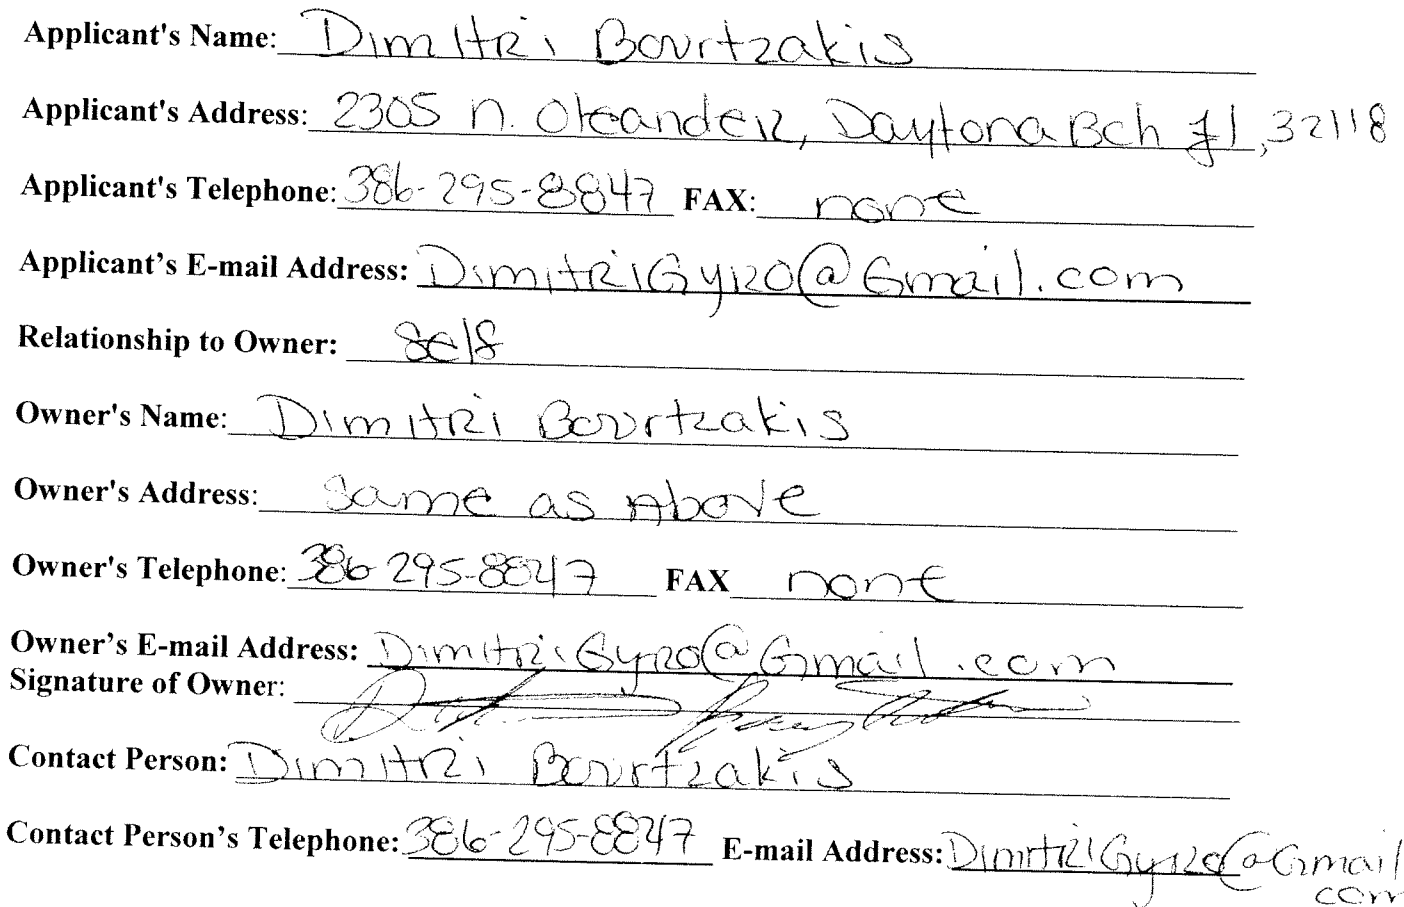 Applicant's Name: Dimitri Bourtzakis
Applicant's Address: 2305 n. Oleander, Daytona Bch fl, 32118
Applicant's Telephone: 386-295-8847 FAX: none
Applicant's E-mail Address: DimitriGyro@Gmail.com
Relationship to Owner: Self
Owner's Name: Dimitri Bourtzakis
Owner's Address: Same as Above
Owner's Telephone: 386-295-8847 FAX none
Owner's E-mail Address: DimitriGyro@Gmail.com
Signature of Owner:
Contact Person: Dimitri Bourtzakis
Contact Person's Telephone: 386-295-8847 E-mail Address: DimitriGyro@Gmail
com